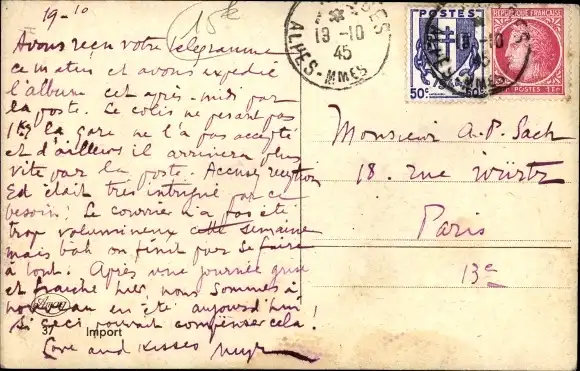 19-10
Avons reçu votre télégramme
ce matin et avons expédié
l'album cet après-midi par
la poste. Le colis ne pesant pas
1 Kg la gare ne l'a pas accepté
et d'ailleurs il arrivera plus
vite par la poste. Accusez réception
Ed était très intrigué par ce
besoin! Le courrier n'a pas été
trop volumineux cette semaine
mais bah on finit par se faire
à tout. Après une journée grise
et fraîche hier, nous sommes à
nouveau en été aujourd'hui
Si ceci pouvait compenser cela!
Love and kisses
37 Import
19-10
45
ALPES-MMES
POSTES
50c
RÉPUBLIQUE FRANÇAISE
POSTES 1F
Monsieur A.-P. Sach
18. rue Würtz
Paris
13e